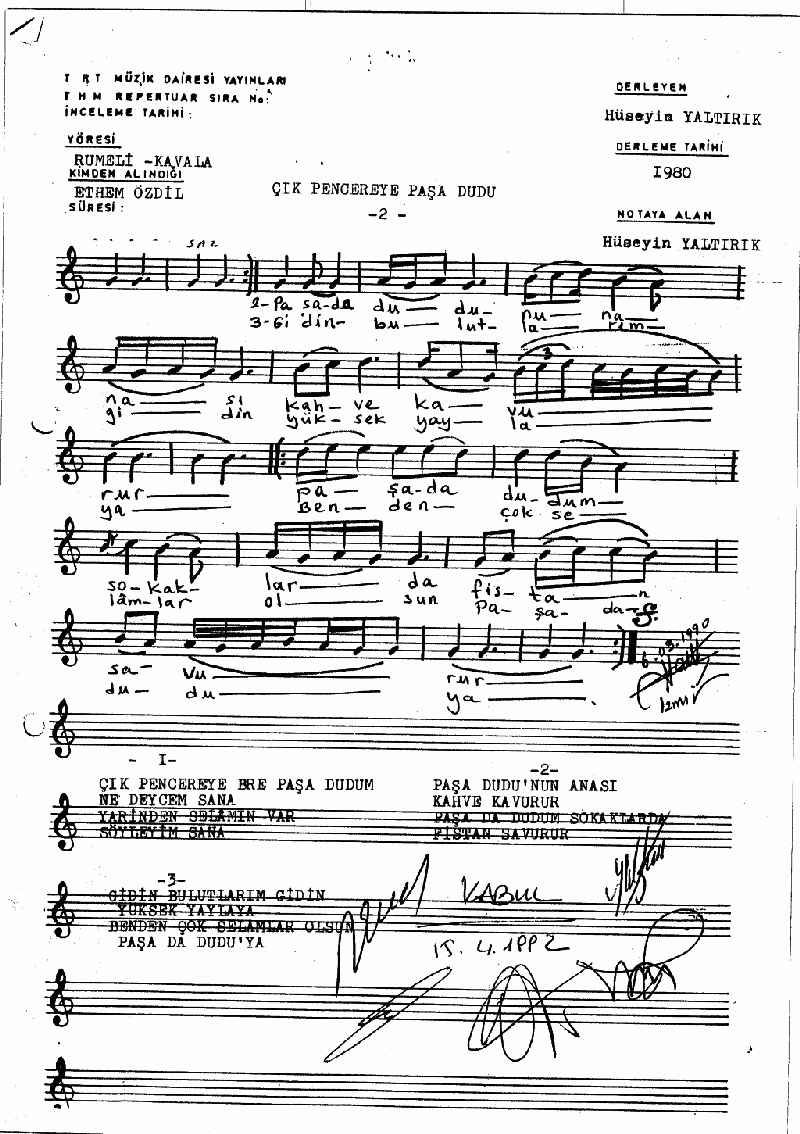 T R T MÜZİK DAİRESİ YAYINLARI
T H M REPERTUAR SIRA No:
İNCELEME TARİHİ:
YÖRESİ
RUMELİ -KAVALA
KİMDEN ALINDIĞI
ETHEM ÖZDİL
SÜRESİ:
DERLEYEN
Hüseyin YALTIRIK
DERLEME TARİHİ
1980
NOTAYA ALAN
Hüseyin YALTIRIK
ÇIK PENCEREYE PAŞA DUDU
-2 -
SAZ
2-Pa sa-da du du- nu na
3-Gi din- bu lut- la rım
na si kah- ve ka vu
gi din yük- sek yay la
3
rur pa- şa-da du- dum
ya Ben- den- çok se
so-kak- lar da fis- ta n
lâm-lar ol sun Pa- şa- da-
sa- vu rur
du- du ya
.03.1990
İzmir
- I-
ÇIK PENCEREYE BRE PAŞA DUDUM
NE DEYCEM SANA
YARİNDEN SELÂMIN VAR
SÖYLEYİM SANA
-2-
PAŞA DUDU'NUN ANASI
KAHVE KAVURUR
PAŞA DA DUDUM SOKAKLARDA
FİSTAN SAVURUR
-3-
GİDİN BULUTLARIM GİDİN
YÜKSEK YAYLAYA
BENDEN ÇOK SELAMLAR OLSUN
PAŞA DA DUDU'YA
KABUL
15.4.1992